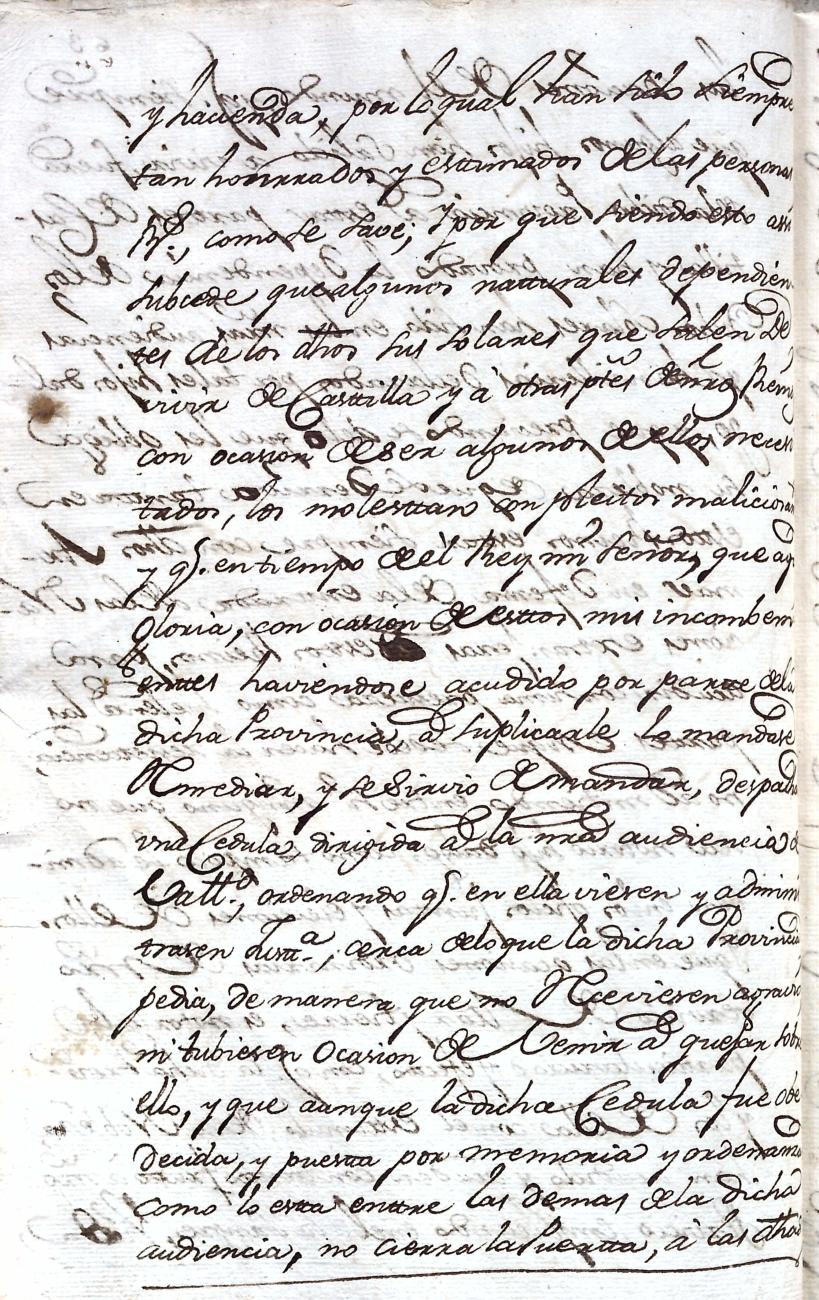 y hacienda, por lo qual, han sido siempre
tan honrrados y esttimados de las personas
Rs., como se save; Y por que siendo esto assi
subcede que algunos natturales dependien
tes de los dhos sus solares que salen De
vivir de Casttilla y a otras ptes de nro Reino
con ocasion de ser algunos de ellos neces
tados, los molesttan con pleitos malicios
y q. en tiempo de el Rey mi señor, que aya
Gloria, con ocasion de esttos mis incombeni
enttes haviendose acudido por partte de la
dicha Provincia, a suplicarle lo mandase
Remediar, y se Sirvio de mandar, despacha
vna Cedula, dirigida a la nra audiencia d
Vall.d, ordenando q. en ella viesen y adminis
trasen Justt.a, cerca de lo que la dicha Provincia
pedia, de manera que no Receviesen agravio
ni tubiesen Ocasion de Venir a quejar sobre
ello, y que aunque la dicha Cedula fue obe
decida, y puestta por memoria y ordenanza
como lo estta enttre las demas de la dicha
audiencia, no cierra la Puertta, a las dhas